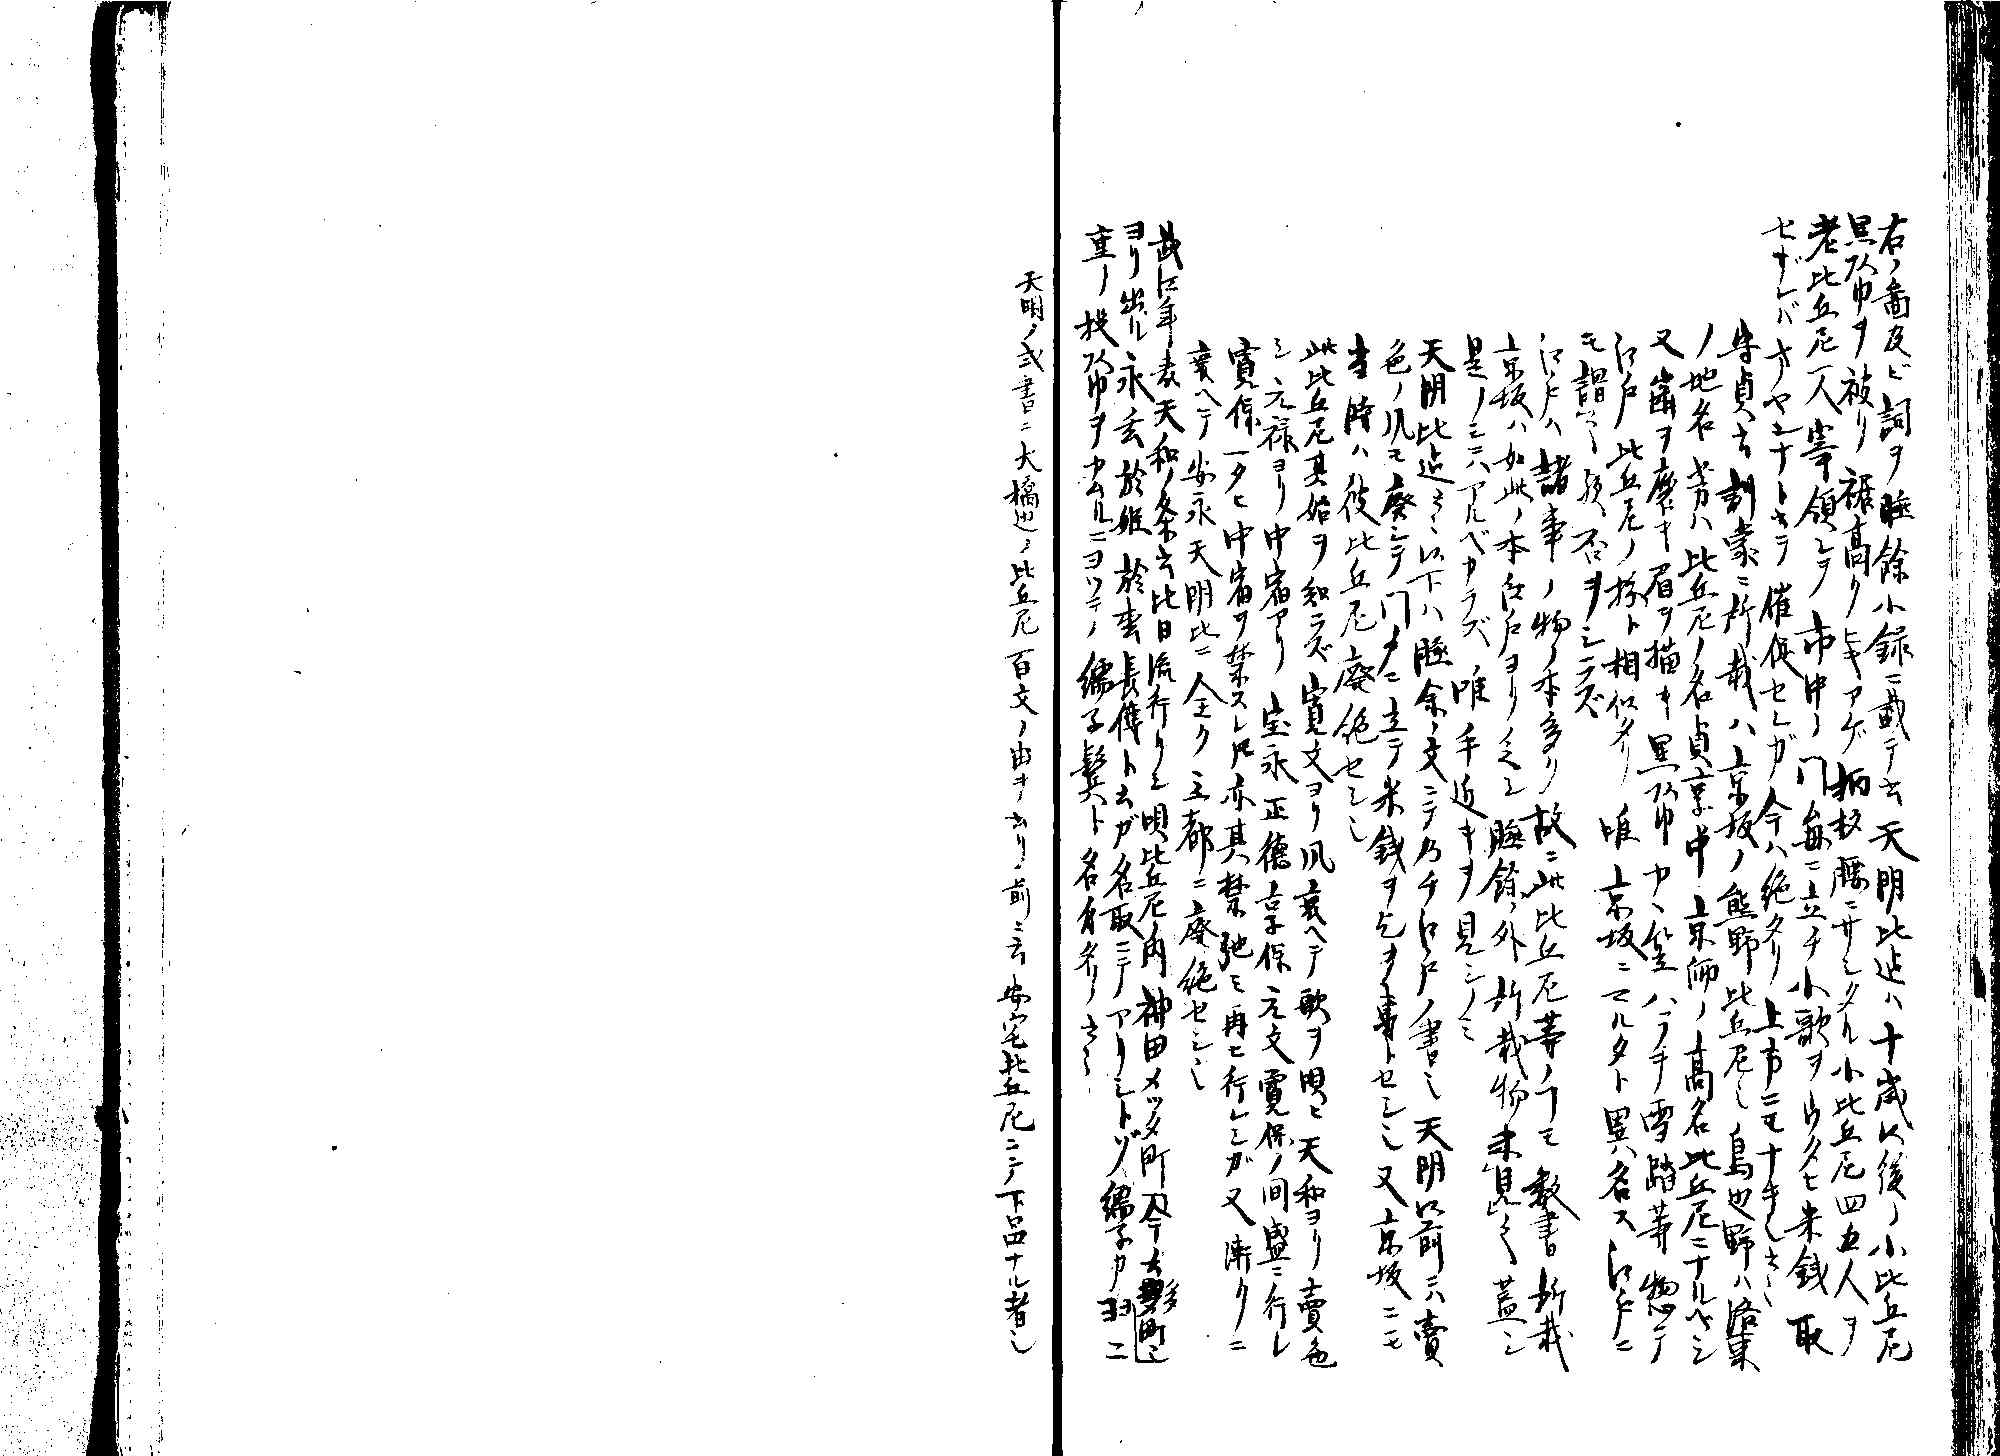 右ノ畵及ビ詞ヲ睡餘小録ニ載テ云天明比迄ハ十歳以後ノ小比丘尼
黒頭巾ヲ被リ裾高クトキアゲ柄杓腰ニサシタル小比丘尼四五人ヲ
老比丘尼一人宰領シテ市中ノ門毎ニ立チ小歌ヲウタヒ米銭取
セザレバオヤンナトキテ催促セシガ今ハ絶タリ上方ニモナキ
守貞云訓蒙ニ所載ハ京坂ノ熊野比丘尼也鳥辺野ハ洛東
ノ地名ハ比丘尼ノ名貞享中京師ノ高名比丘尼ニナルベシ
又歯ヲ磨キ眉ヲ描キ黒頭巾カヽ笠バラヲ雪踏等惣テ
江戸比丘尼ノ扮ト相似タリ唯京坂ニマルタト異名ス江戸ニ
モ謂之歟否ヲシラズ
江戸ハ諸事ノ物ノ本多リ故ニ此比丘尼等ノコモ数書所載
京坂ハ如此ノ本江戸ヨリ乏シ睡餘ノ外所載物未見之蓋シ
是ノミニハアルベカラズ唯手近キヲ見シノミ
天明比迄云々以下ハ睡余ノ文ニテ乃チ江戸ノ書也天明以前ニハ賣
色ノ風モ廃シテ門々ニ立テ米銭ヲ乞ヲ事トセシ也又京坂ニモ
當時ハ彼比丘尼廃絶セシ也
此比丘尼其始ヲ知ラズ寛文ヨリ風変ヘテ歌ヲ唄ヒ天和ヨリ賣色
シ元禄ヨリ中宿アリ宝永正徳享保元文寛保ノ間盛ニ行レ
寛保一タビ中宿ヲ禁スレ𪜈亦其禁弛ミ再ヒ行レシガ又漸クニ
衰ヘテ安永天明比ニ全ク三都ニ廃絶セシ也
武江年表天和ノ条云此日流行リシ唄比丘尼ノ内神田メッタ町今云多町也
ヨリ出ル永玄於姫於松長傳ト云ガ名取ニテアリシトゾ繻子カ羽二
重ノ投頭巾ヲカムルニヨツテノ繻子鬢ト名有タリ云々
天明ノ或書ニ大橋辺ノ比丘尼百文ノ由ヲ云リ前ニ云安宅比丘尼ニテ下品ナル者也